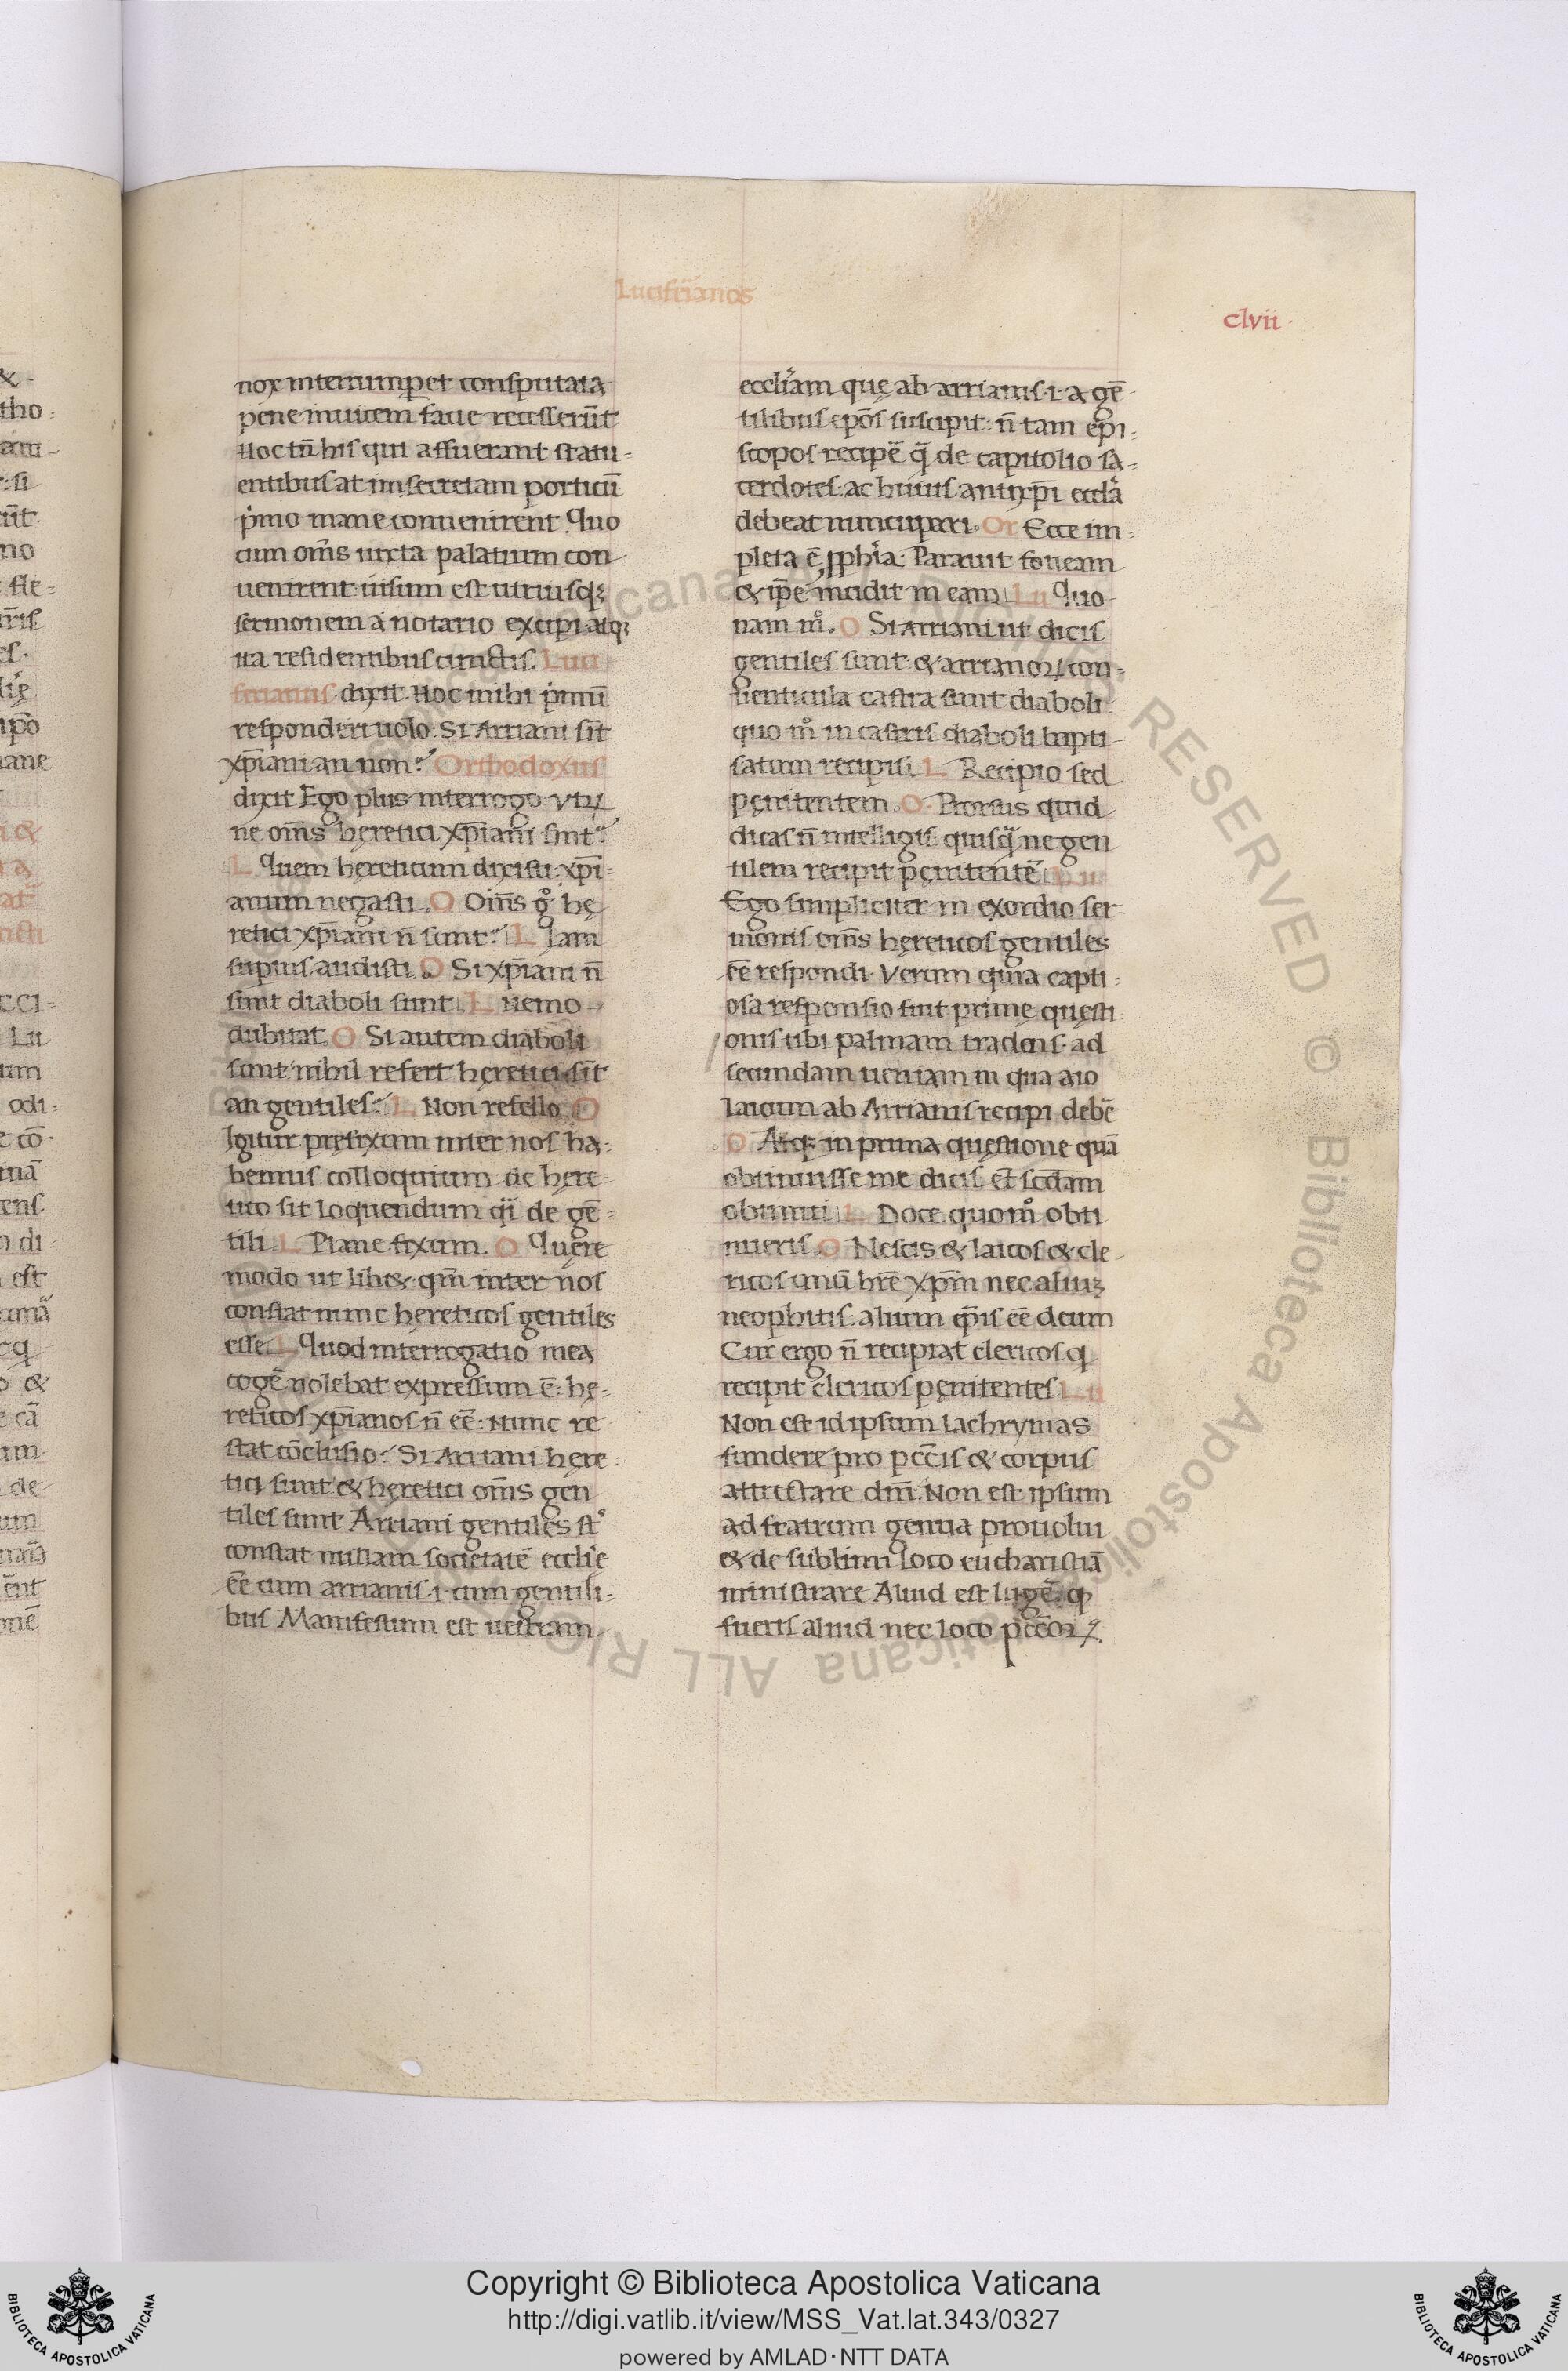 Lucifr̃ianos
clvii·
nox interrumperet consputata
pene inuicem facie recesserũt
Hoc tñ his qui affuerant statu-
entibus at in secretam porticũ
pͥmo mane conuenirent. Quo
cum om̃s iuxta palatium con
uenirent uisum est utriusq;
sermonem a notario excipi atq;
ita residentibus cunctis. Luci
ferianus dixit. Hoc mihi pͥmũ
responderi uolo: Si Arriani sĩt
xp̃iani an non? Orthodoxus
dixit Ego plus interrogo. Vtꝝ
ne om̃s heretici xp̃iani sint?
L Quem hereticum dixisti: xp̃i-
anum negasti. O Om̃s gͦ hę
retici xp̃iani ñ sunt? L Iam
superius audisti. O Si xp̃iani ñ
sunt diaboli sunt. L Nemo
dubitat. O Si autem diaboli
sunt nihil refert hęretici sĩt
an gentiles. L Non refello. O
Igitur prefixum inter nos ha-
bemus colloquium: de here
tico sit loquendum qͣi de gẽ-
tili. L Plane fixum. O Quęre
modo ut lib&: qm̃ inter nos
constat nunc hęreticos gentiles
esse. L Quod interrogatio mea
cogẽ uolebat expressum ẽ: hę-
reticos xp̃ianos ñ eẽ: Nunc re
stat cõclusio. Si Arriani hęre-
tici sunt & hęretici om̃s gen
tiles sunt Arriani gentiles st̃
constat nullam societatẽ eccliͤe
eẽ cum arrianis ·i· cum gentili-
bus Manifestum est uestram
eccliͣam quę ab arrianis ·i· a gẽ
tilibus ep̃os suscipit: ñ tam epi-
scopos recipẽ qͣ̃ de capitolio sa-
cerdotes: ac huius antixp̃i eccl̃a
debeat nuncupari. Or Ecce im-
pleta ẽ ꝓphiͣa. Parauit foueam
& ip̃e incidit in eam. Lu Quo
nam mͦ. O Si Arriani ut dicis
gentiles sunt & arrianoꝝ con-
uenticula castra sunt diaboli
quo mͦ in castris diaboli bapti-
satum recipis. L Recipio sed
pęnitentem. O Prorsus quid
dicas ñ intelligis: quisqͣ̃ ne gen
tilem recipit pęnitentẽ. Lu
Ego simpliciter in exordio ser-
monis om̃s hereticos gentiles
eẽ respondi. Verum quia capti-
osa responsio fuit prime questi
onis tibi palmam tradens: ad
secundam ueniam in qua aio
Laicum ab Arrianis recipi debẽ
O Atq; in prima questione quã
obtinuisse me dicis. Et scd̃am
obtinui. L Doce quomͦ obti
nueris. O Nescis & laicos & cle-
ricos unũ hr̃e xp̃m nec aliuꝫ
neophitis: alium ep̃is eẽ deum
Cur ergo ñ recipiat clericos q̃
recipit clericos pęnitentes. Lu
Non est id ipsum lachrymas
fundere pro pcc̃is & corpus
attrectare dm̃. Non est ipsum
ad fratrum genua prouolui
& de sublimi loco eucharistiã
ministrare Aliud est lugẽ ꝙ
fueris aliud nec loco pcc̃oꝝ